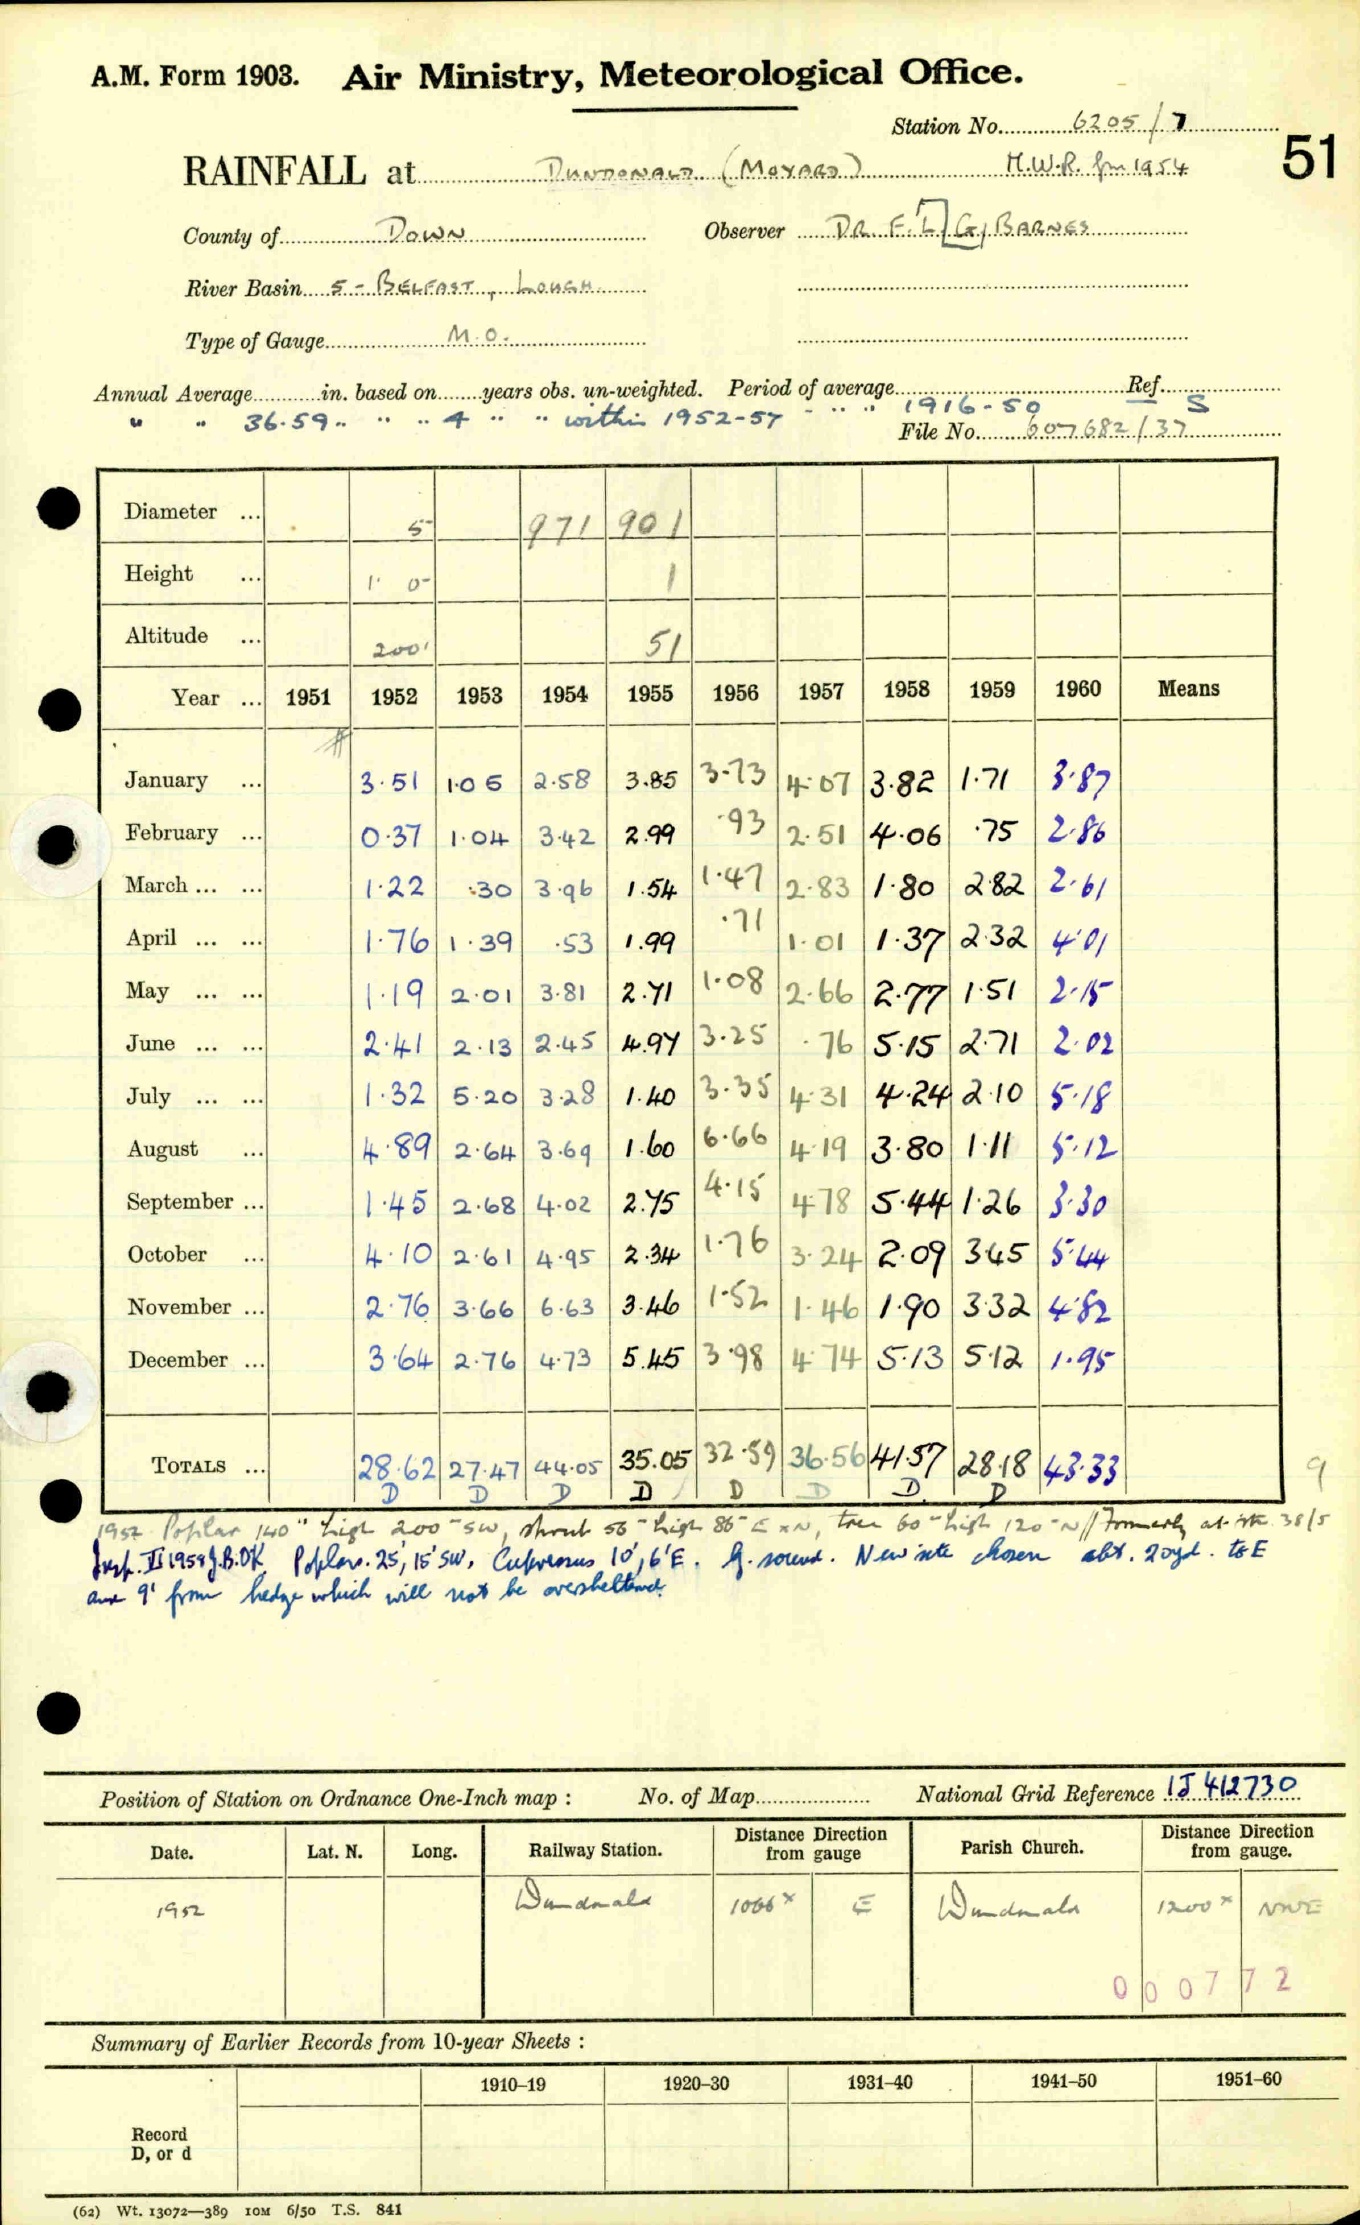 A.M. Form 1903. Air Ministry, Meteorological Office.
Station No. 6205/7
51
RAINFALL at DUNDONALD (MOYARD) M.W.R. fm 1954
County of DOWN Observer DR. F. L. G. BARNES
River Basin 5 - BELFAST, LOUGH
Type of Gauge M.O.
Annual Average in. based on years obs. un-weighted. Period of average Ref.
" " 36.59 " " " 4 " " within 1952-57 " " " 1916-50 S
File No. 607682/37
Diameter ... 5" 971 901
Height ... 1' 0" 1
Altitude ... 200' 51
Year ... 1951 1952 1953 1954 1955 1956 1957 1958 1959 1960 Means
January ... 3.51 1.05 2.58 3.85 3.73 4.07 3.82 1.71 3.87
February ... 0.37 1.04 3.42 2.99 .93 2.51 4.06 .75 2.86
March ... ... 1.22 .30 3.96 1.54 1.47 2.83 1.80 2.82 2.61
April ... ... 1.76 1.39 .53 1.99 .71 1.01 1.37 2.32 4.01
May ... ... 1.19 2.01 3.81 2.71 1.08 2.66 2.77 1.51 2.15
June ... ... 2.41 2.13 2.45 4.97 3.25 .76 5.15 2.71 2.02
July ... ... 1.32 5.20 3.28 1.40 3.35 4.31 4.24 2.10 5.18
August ... 4.89 2.64 3.69 1.60 6.66 4.19 3.80 1.11 5.12
September ... 1.45 2.68 4.02 2.75 4.15 4.78 5.44 1.26 3.30
October ... 4.10 2.61 4.95 2.34 1.76 3.24 2.09 3.45 5.44
November ... 2.76 3.66 6.63 3.46 1.52 1.46 1.90 3.32 4.82
December ... 3.64 2.76 4.73 5.45 3.98 4.74 5.13 5.12 1.95
TOTALS ... 28.62 27.47 44.05 35.05 32.59 36.56 41.57 28.18 43.33 9
D D D D D D D D
1952 Poplar 140" high 200" SW, shrub 56" high 86" E x N, tree 60" high 120" N // Formerly at 38/5
Insp. VI 1958 J.B.DK. Poplars 25', 15' SW, Cupressus 10', 6' E. G. sound. New site chosen abt. 20yd. to E
and 9' from hedge which will not be oversheltered.
Position of Station on Ordnance One-Inch map : No. of Map National Grid Reference IJ 412730
Date. Lat. N. Long. Railway Station. Distance Direction from gauge Parish Church. Distance Direction from gauge.
1952 Dundonald 1066x E Dundonald 1200x NWE
000772
Summary of Earlier Records from 10-year Sheets :
1910–19 1920–30 1931–40 1941–50 1951–60
Record
D, or d
(62) Wt. 13072—389 10M 6/50 T.S. 841